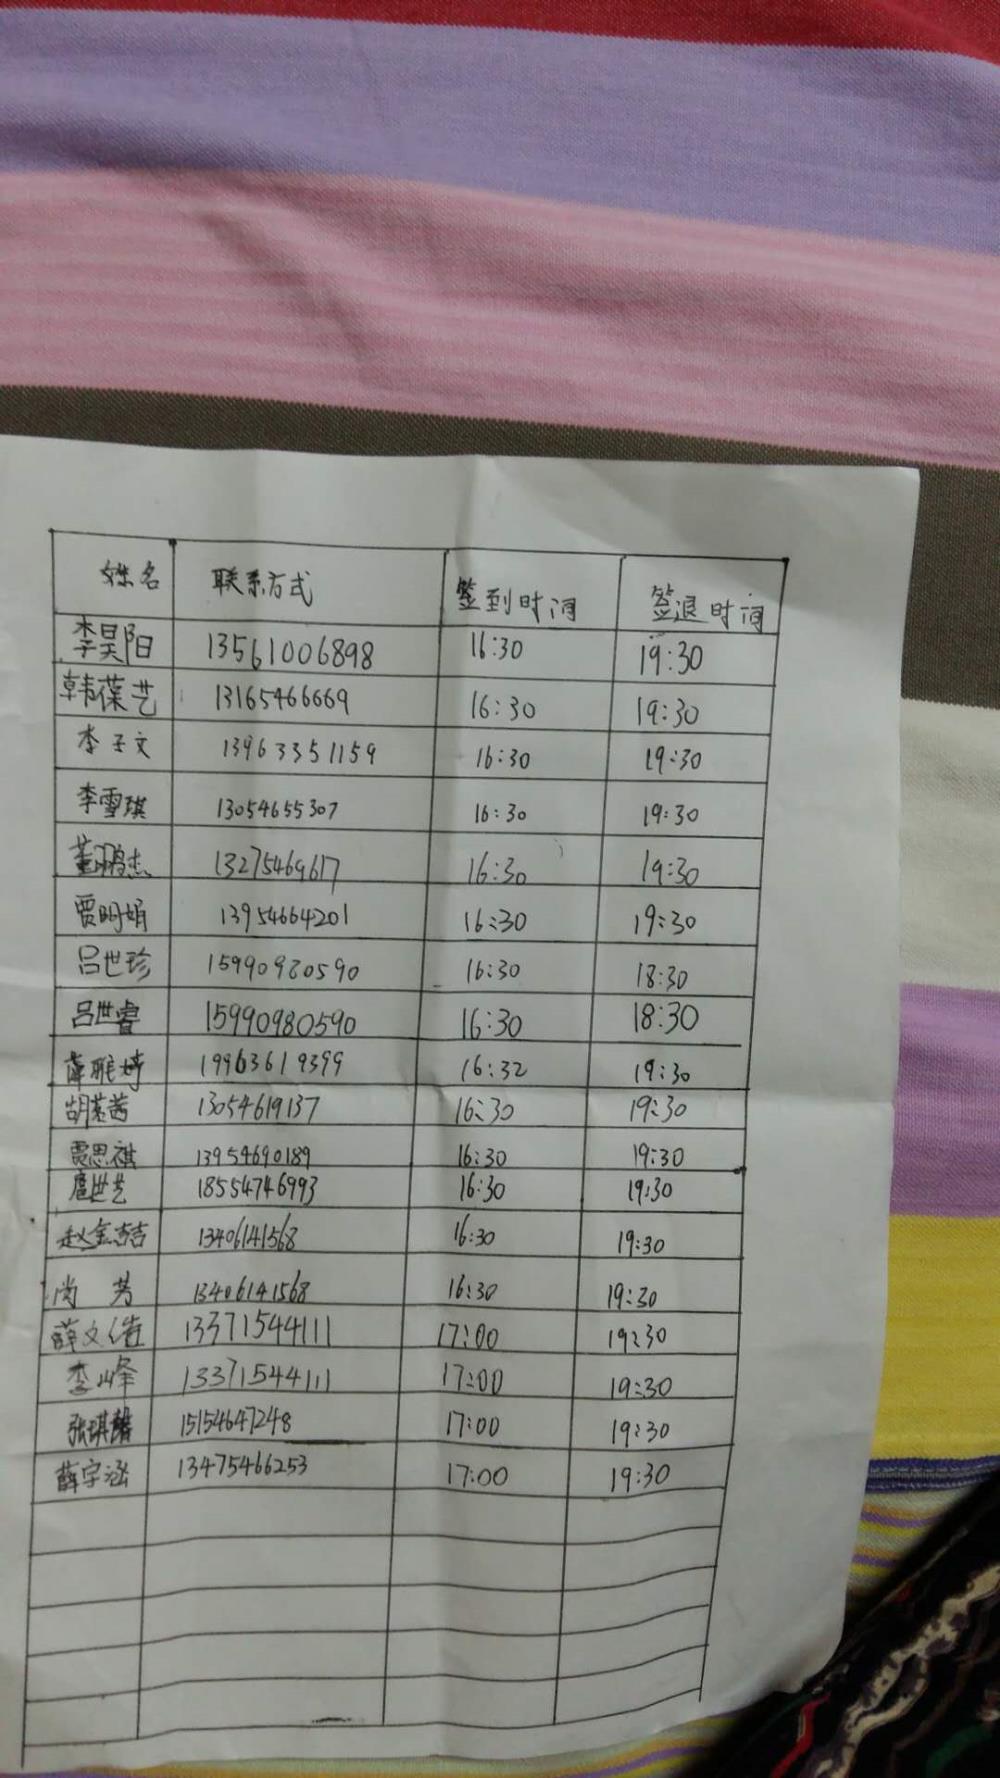 姓名 联系方式 签到时间 签退时间
李昊阳 13561006898 16:30 19:30
韩葆艺 13165466669 16:30 19:30
李子文 13963351159 16:30 19:30
李雪琪 13054655307 16:30 19:30
董鹏杰 13275469617 16:30 19:30
贾明娟 13954664201 16:30 19:30
吕世珍 15990980590 16:30 18:30
吕世睿 15990980590 16:30 18:30
薛雅婷 19963619399 16:32 19:30
胡茜 13054619137 16:30 19:30
贾思祺 13954690189 16:30 19:30
世艺 18554746993 16:30 19:30
赵金喆 13406141568 16:30 19:30
尚芳 13406141568 16:30 19:30
薛文倩 13371544111 17:00 19:30
李峰 13371544111 17:00 19:30
张琪馨 15154647248 17:00 19:30
薛宇涵 13475466253 17:00 19:30